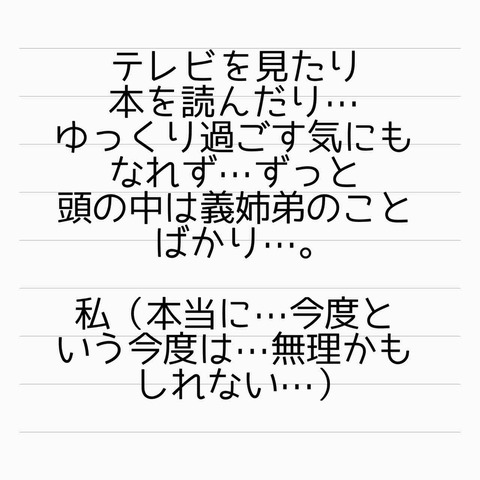 テレビを見たり
本を読んだり…
ゆっくり過ごす気にも
なれず…ずっと
頭の中は義姉弟のこと
ばかり…。
私（本当に…今度と
いう今度は…無理かも
しれない…）